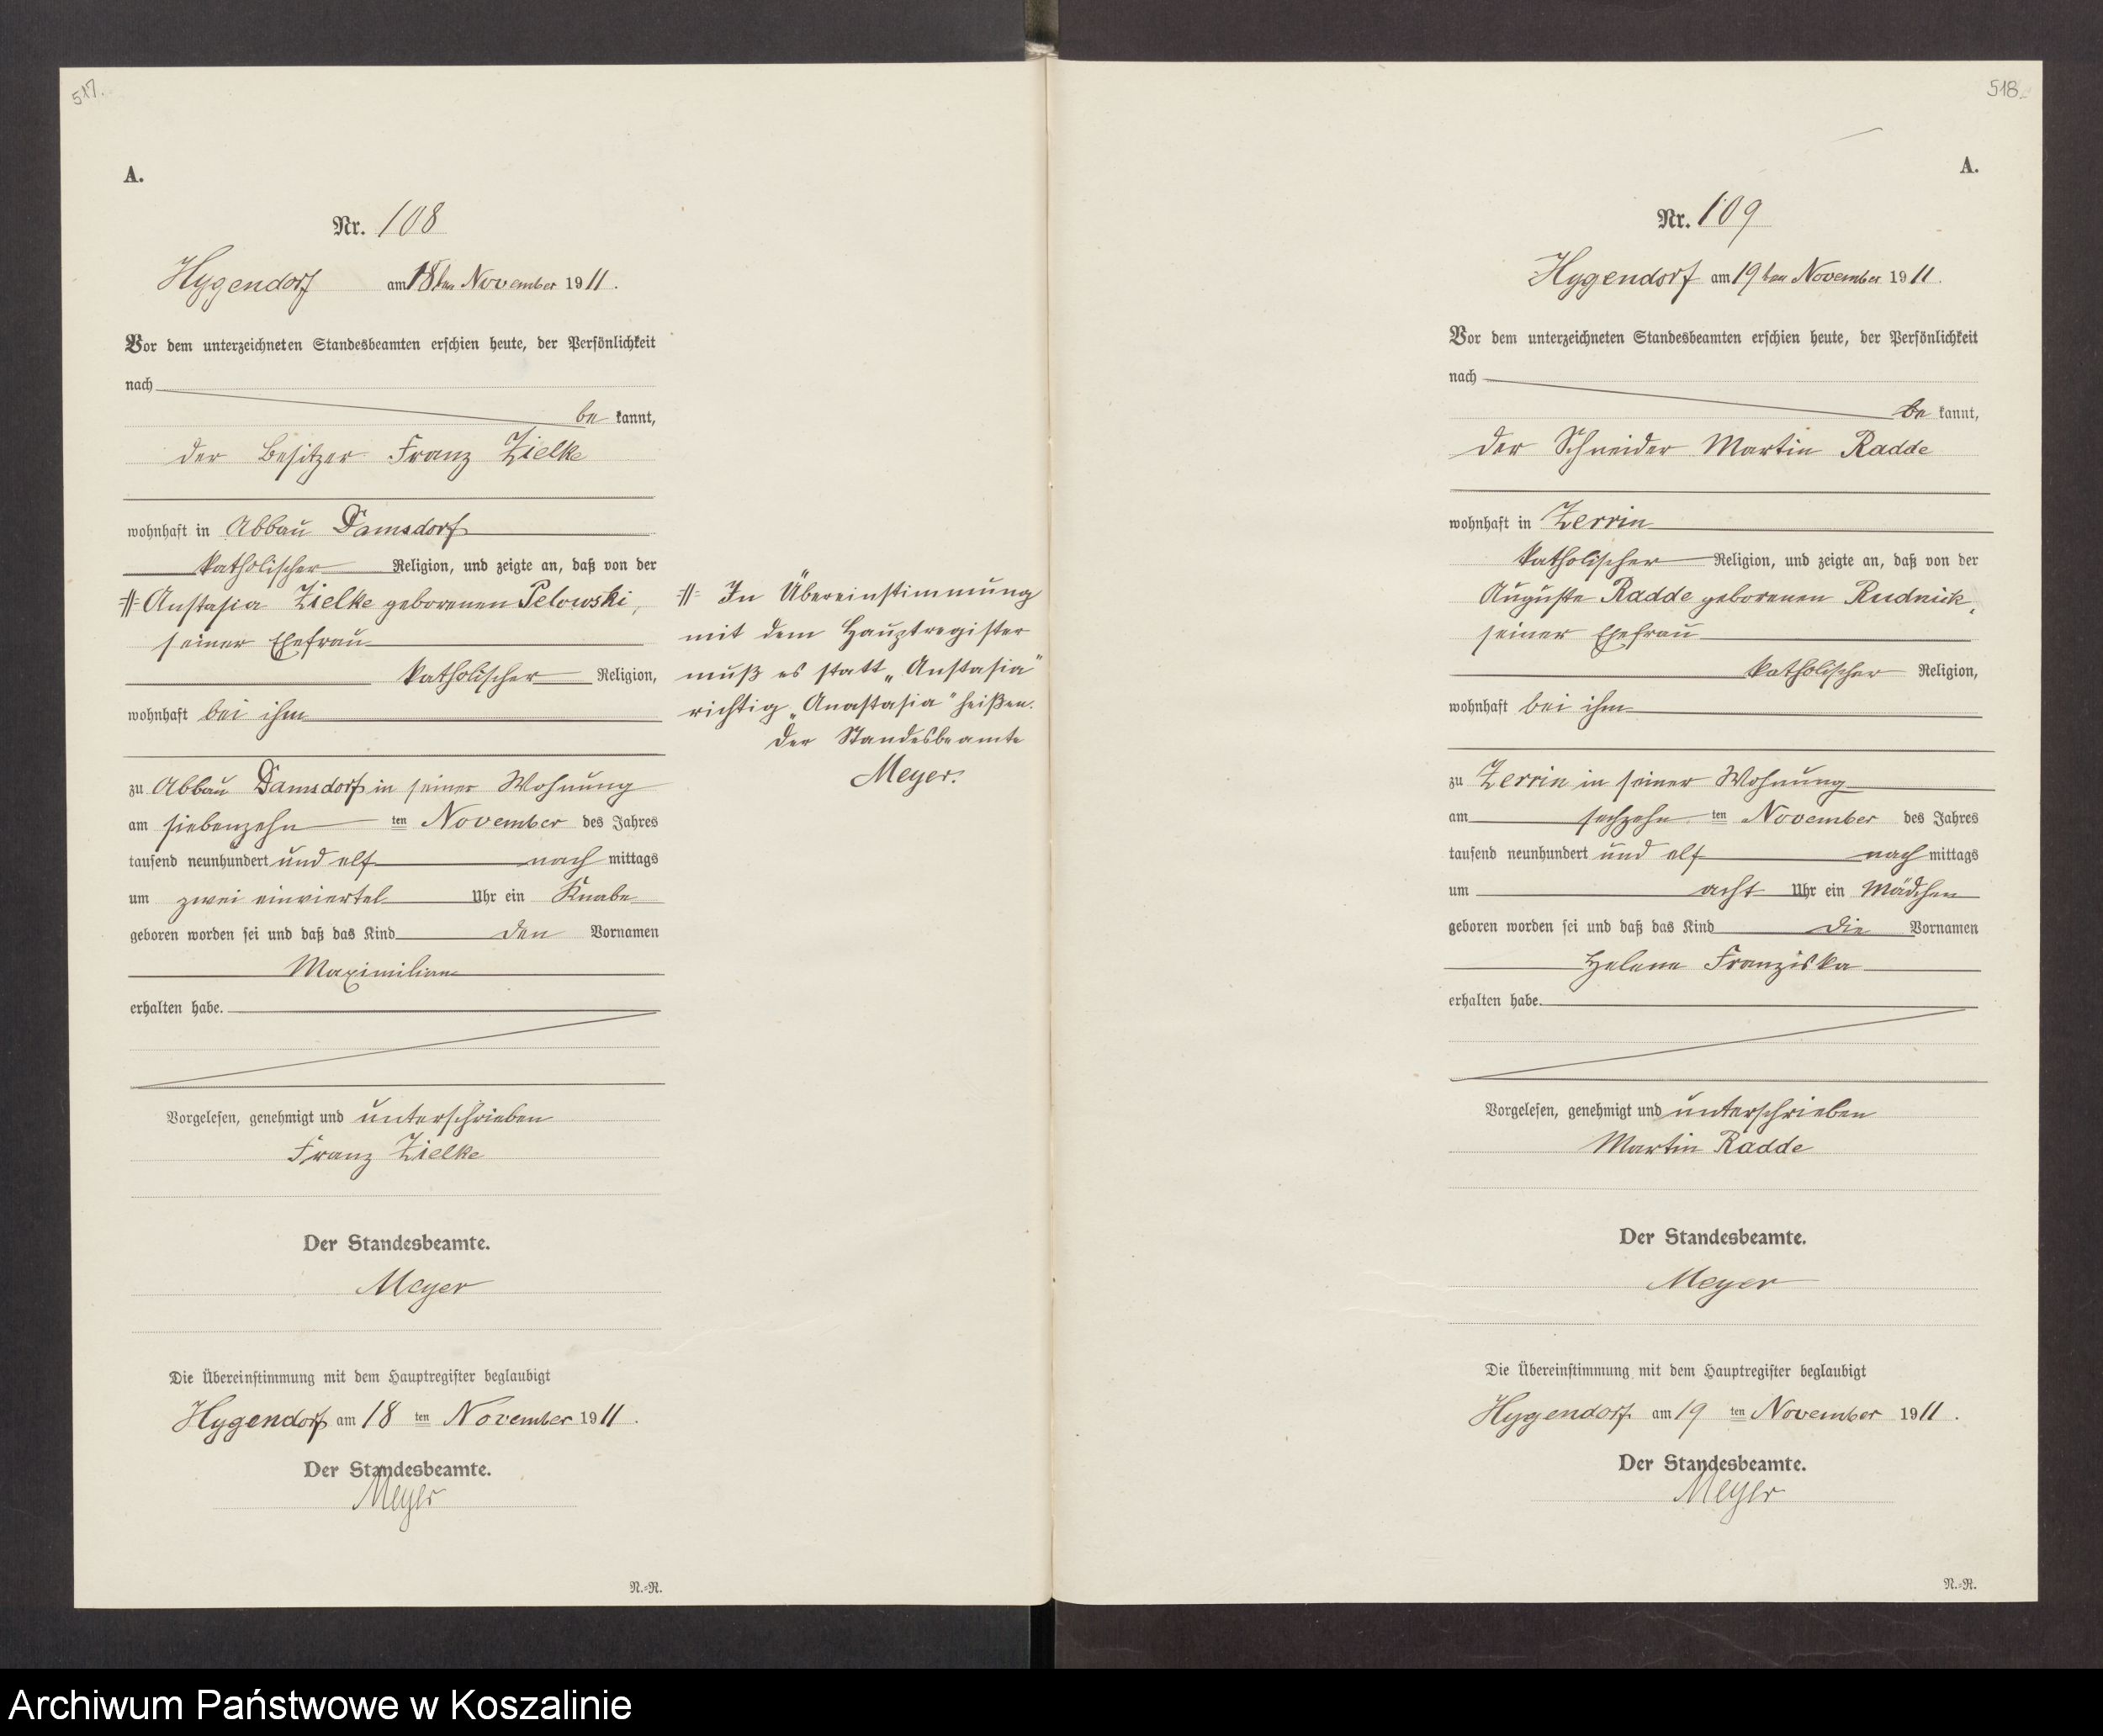 517.
A.
Nr. 108
Hygendorf am 18ten November 1911.
Vor dem unterzeichneten Standesbeamten erschien heute, der Persönlichkeit
nach
be kannt,
der Besitzer Franz Zielke
wohnhaft in Abbau Damsdorf
katholischer Religion, und zeigte an, daß von der
# Anstasia Zielke geborenen Pelowski,
seiner Ehefrau
katholischer Religion,
wohnhaft bei ihm
zu Abbau Damsdorf in seiner Wohnung
am siebenzehn ten November des Jahres
tausend neunhundert und elf nach mittags
um zwei einviertel Uhr ein Knabe
geboren worden sei und daß das Kind den Vornamen
Maximilian
erhalten habe.
Vorgelesen, genehmigt und unterschrieben
Franz Zielke
Der Standesbeamte.
Meyer
Die Übereinstimmung mit dem Hauptregister beglaubigt
Hygendorf am 18 ten November 1911.
Der Standesbeamte.
Meyer
N.=R.
# In Übereinstimmung
mit dem Hauptregister
muß es statt „Anstasia"
richtig „Anastasia" heißen.
Der Standesbeamte
Meyer.
518.
A.
Nr. 109
Hygendorf am 19ten November 1911.
Vor dem unterzeichneten Standesbeamten erschien heute, der Persönlichkeit
nach
be kannt,
der Schneider Martin Radde
wohnhaft in Zerrin
katholischer Religion, und zeigte an, daß von der
Auguste Radde geborenen Rudnick,
seiner Ehefrau
katholischer Religion,
wohnhaft bei ihm
zu Zerrin in seiner Wohnung
am sechzehn ten November des Jahres
tausend neunhundert und elf nach mittags
um acht Uhr ein Mädchen
geboren worden sei und daß das Kind die Vornamen
Helene Franziska
erhalten habe.
Vorgelesen, genehmigt und unterschrieben
Martin Radde
Der Standesbeamte.
Meyer
Die Übereinstimmung mit dem Hauptregister beglaubigt
Hygendorf am 19 ten November 1911.
Der Standesbeamte.
Meyer
N.=R.
Archiwum Państwowe w Koszalinie